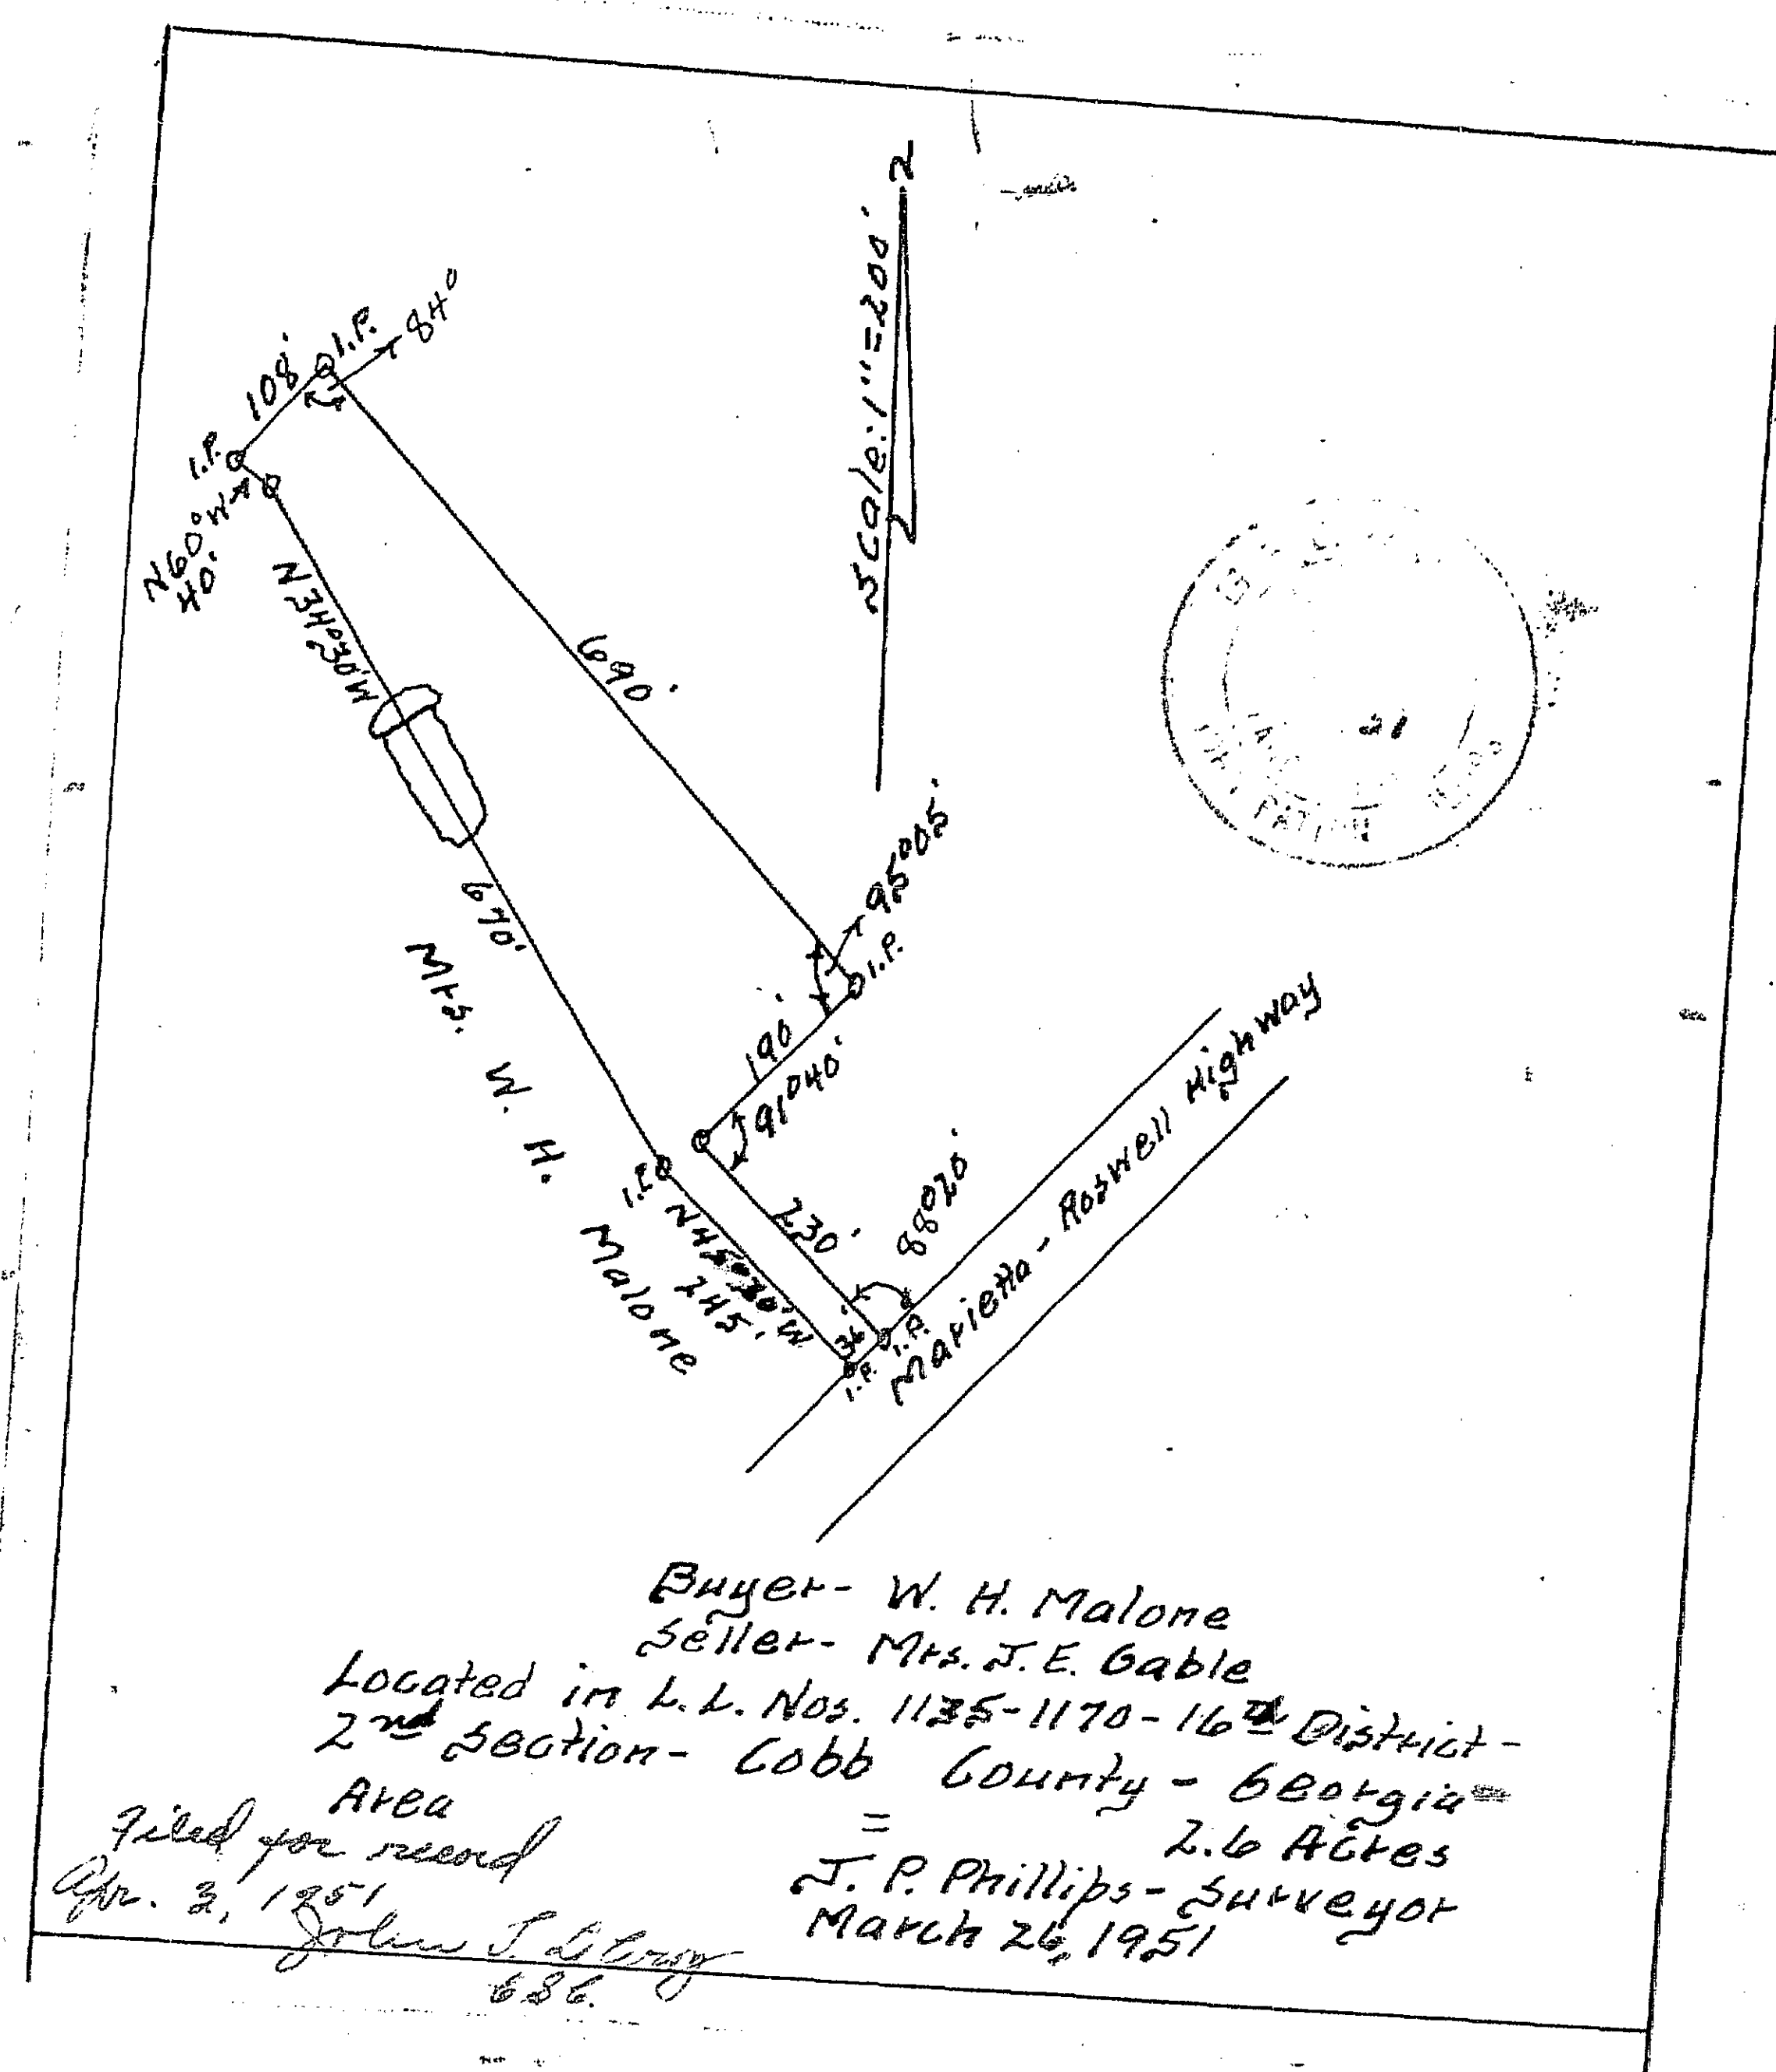 Scale: 1" = 200'
I.P.
84°
108'
I.P.
N60°W
40'
N34°30'W
690'
670'
95°05'
I.P.
190'
91°40'
Mrs. W. H. Malone
I.P.
N45°30'W
245'
230'
88°20'
36'
I.P.
I.P.
Marietta - Roswell Highway
Buyer- W. H. Malone
Seller- Mrs. J. E. Gable
Located in L.L. Nos. 1135-1170-16th District-
2nd Section- Cobb County - Georgia-
Area = 2.6 Acres
J. P. Phillips - Surveyor
March 26, 1951
Filed for record
Apr. 3, 1951
John